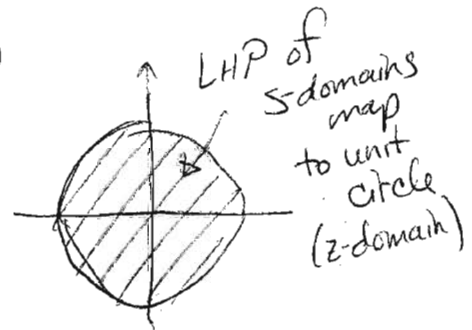 LHP of
s-domains
map
to unit
circle
(z-domain)